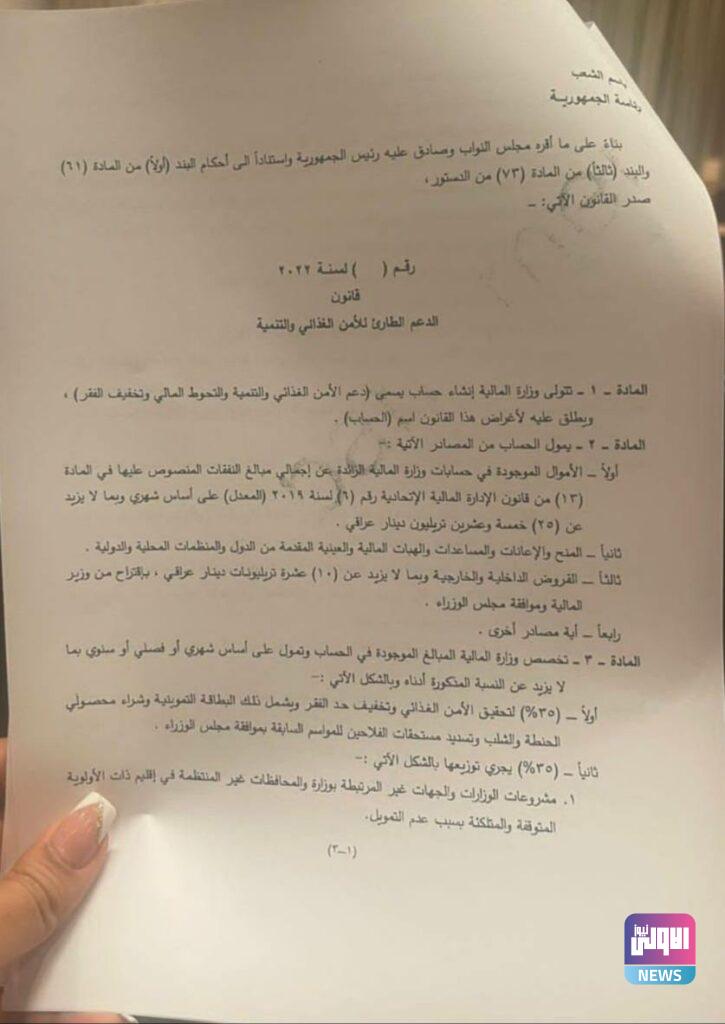 باسم الشعب
رئاسة الجمهورية
بناءً على ما أقره مجلس النواب وصادق عليه رئيس الجمهورية واستناداً الى أحكام البند (أولاً) من المادة (٦١)
والبند (ثالثاً) من المادة (٧٣) من الدستور،
صدر القانون الآتي: ــ
رقم (    ) لسنة ٢٠٢٢
قانون
الدعم الطارئ للأمن الغذائي والتنمية
المادة ــ ١ ــ تتولى وزارة المالية إنشاء حساب يسمى (دعم الأمن الغذائي والتنمية والتحوط المالي وتخفيف الفقر) ،
ويطلق عليه لأغراض هذا القانون اسم (الحساب) .
المادة ــ ٢ ــ يمول الحساب من المصادر الآتية :ــ
أولاً ــ الأموال الموجودة في حسابات وزارة المالية الزائدة عن إجمالي مبالغ النفقات المنصوص عليها في المادة
(١٣) من قانون الإدارة المالية الإتحادية رقم (٦) لسنة ٢٠١٩ (المعدل) على أساس شهري وبما لا يزيد
عن (٢٥) خمسة وعشرين تريليون دينار عراقي .
ثانياً ــ المنح والإعانات والمساعدات والهبات المالية والعينية المقدمة من الدول والمنظمات المحلية والدولية .
ثالثاً ــ القروض الداخلية والخارجية وبما لا يزيد عن (١٠) عشرة تريليونات دينار عراقي ، بإقتراح من وزير
المالية وموافقة مجلس الوزراء .
رابعاً ــ أية مصادر أخرى .
المادة ــ ٣ ــ تخصص وزارة المالية المبالغ الموجودة في الحساب وتمول على أساس شهري أو فصلي أو سنوي بما
لا يزيد عن النسبة المذكورة أدناه وبالشكل الآتي :ــ
أولاً ــ (٣٥%) لتحقيق الأمن الغذائي وتخفيف حد الفقر ويشمل ذلك البطاقة التموينية وشراء محصولي
الحنطة والشلب وتسديد مستحقات الفلاحين للمواسم السابقة بموافقة مجلس الوزراء .
ثانياً ــ (٣٥%) يجري توزيعها بالشكل الآتي :ــ
١. مشروعات الوزارات والجهات غير المرتبطة بوزارة والمحافظات غير المنتظمة في إقليم ذات الأولوية
المتوقفة والمتلكئة بسبب عدم التمويل.
(١ــ٣)
الاولى نيوز
NEWS